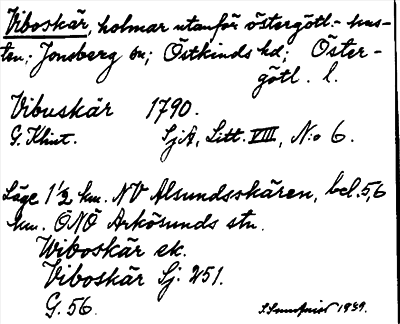 Viboskär, holmar utanför östergötl:- kus-
ten; Jonsberg sn; Östkinds hd; Öster-
götl. l.
Vibuskär 1790.
G. Klint. SjA, Litt. VIII, N:o 6.
Läge 1 1/2 km. NV Alsundsskären, bel. 5,6
km. ONO Arkösunds stn.
Wiboskär ek.
Viboskär Sj. 251.
G. 56. 1939.